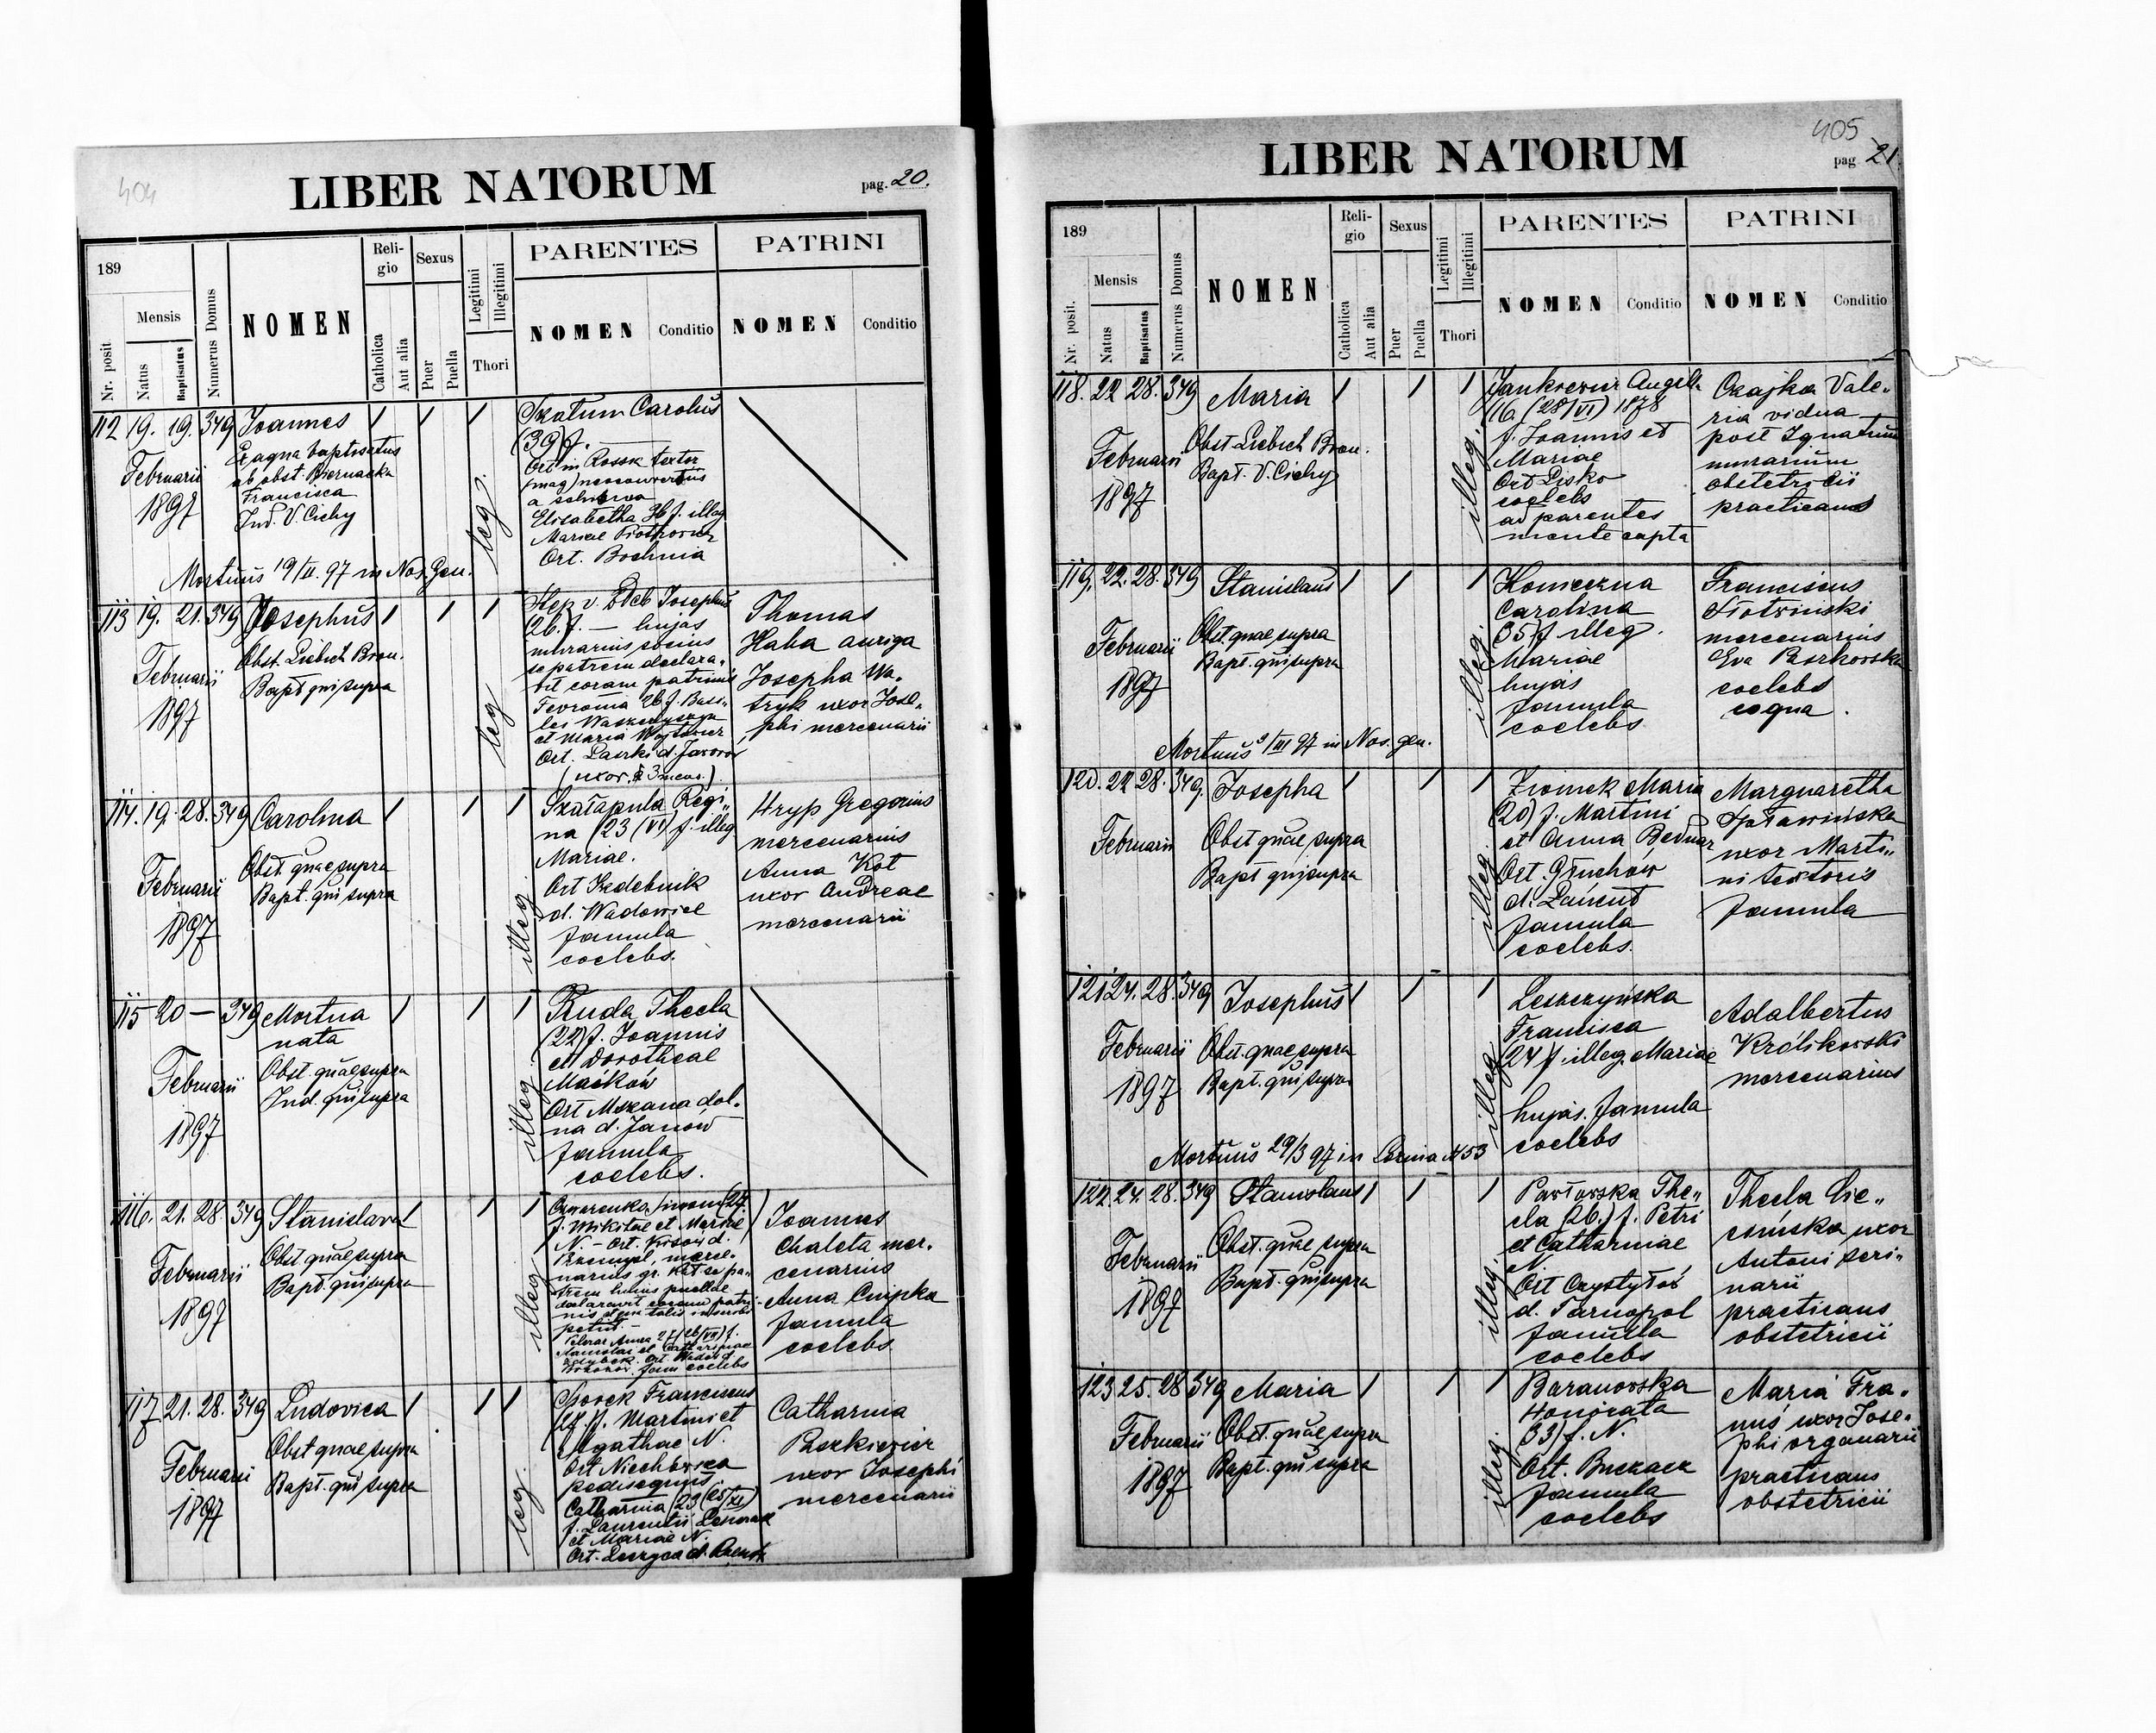 404
LIBER NATORUM
pag. 20.
189
Nr. posit
Mensis
Natus
Baptisatus
Numerus Domus
NOMEN
Reli-
gio
Catholica
Aut alia
Sexus
Puer
Puella
Legitimi
Illegitimi
Thori
PARENTES
NOMEN
Conditio
PATRINI
NOMEN
Conditio
112 19. 19. 349 Joannes 1 1 1
Februarii
1897
Ex aqua baptisatus
ab obst. Biernacka
Francisca
Ind. V. Cichy
leg.
Carolus
(39) f.
Ort in textor
a
Elisabetha 36 f. illeg
Mariae
Ort. Bochnia
Mortuus 19/II. 97 in Nos. Gen.
113 19. 21. 349 Josephus 1 1 1
Februarii
1897
Obst. Liebich Bron.
Bapt qui supra
leg
Josephus
(26. f. — hujas
murarius socius
se patrem declara-
vit coram patrinis
26 f. Basi-
lei
et Maria
Ort. d. Jaworow
Thomas
Haba auriga
Josepha Wa-
tryk uxor Jose-
phi mercenarii
114. 19. 28. 349 Carolina 1 1 1
Februarii
1897
Obst. quae supra
Bapt. qui supra
illeg.
Szałapula Regi-
na (23 (VI) f. illeg
Mariae.
Ort
d. Wadowice
famula
coelebs.
Hryp Gregorius
mercenarius
Anna Kot
uxor Andreae
mercenarii
115 20 — 349 Mortua 1 1 1
nata
Februarii
1897
Obst. quae supra
Ind. qui supra
illeg.
Ruda Thecla
(22) f. Joannis
et Dorotheae
Maćków
Ort Mszana dol-
na d.
famula
coelebs.
116. 21. 28. 349 Stanislava 1 1 1
Februarii
1897
Obst quae supra
Bapt. qui supra
illeg
f. Mikitae et Mariae
N. – Ort. d.
Przemysl, merce-
narius gr. Kat se pa-
trem hujus puellae
declaravit coram patri-
nis
petiit. –
Anna 27 (26/VII) f.
Stanislai et Catharinae
fam. coelebs
Joannes
Chaleta mer-
cenarius
Anna Cnipka
famula
coelebs.
117 21. 28. 349 Ludovica 1 1 1
Februarii
1897
Obst quae supra
Bapt. qui supra
leg.
Sporek Franciscus
f. Martini et
Agathae N.
Ort
pedisequus.
Catharina (23 (25/XI)
f. Laurentii
et Mariae N.
Ort.
Catharina
Paszkiewicz
uxor Josephi
mercenarii
405
LIBER NATORUM
pag 21.
189
Nr. posit.
Mensis
Natus
Baptisatus
Numerus Domus
NOMEN
Reli-
gio
Catholica
Aut alia
Sexus
Puer
Puella
Legitimi
Illegitimi
Thori
PARENTES
NOMEN
Conditio
PATRINI
NOMEN
Conditio
118. 22 28. 349 Maria 1 1 1
Februarii
1897
Obst Liebich Bron.
Bapt. V. Cichy
illeg.
Jankiewicz Angela
(28/VI) 1878
f. Joannis et
Mariae
Ort Lisko
coelebs
ad parentes
mente capta
Czajka Vale-
ria vidua
post Ignatium
murarium
obstetricii
practicans
119. 22. 28. 349 Stanislaus 1 1 1
Februarii
1897
Obst. quae supra
Bapt. qui supra
illeg.
Komeczna
Carolina
35 f illeg.
Mariae
hujas
famula
coelebs
Franciscus
Piotrowski
mercenarius
Eva
coelebs
coqua.
Mortuus 3/III 97 in Nos. gen.
120. 22 28. 349. Josepha 1 1 1
Februarii
Obst quae supra
Bapt qui supra
illeg.
Zioimek Maria
(20) f. Martini
et Anna Bednarz
Ort. Głuchów
d. Łańcut
famula
coelebs.
Marguaretha
Spławińska
uxor Marti-
ni textoris
famula
121 24. 28. 349 Josephus 1 1 1
Februarii
1897
Obst. quae supra
Bapt. qui supra
illeg.
Leszczyńska
Francisca
24 f illeg. Mariae
hujas. famula
coelebs
Adalbertus
Królikowski
mercenarius
Mortuus 29/3 97 in 453
122. 24. 28. 349 Stanislaus 1 1 1
Februarii
1897
Obst. quae supra
Bapt. qui supra
illeg.
Pawłowska The-
cla (26.) f. Petri
et Catharinae
N.
Ort
d. Tarnopol
famula
coelebs
Thecla Cie-
uxor
Antoni scri-
narii
practicans
obstetricii
123 25. 28 349 Maria 1 1 1
Februarii
1897
Obst. quae supra
Bapt. qui supra
illeg.
Baranowska
Honorata
33) f. N.
Ort. Buczacz
famula
coelebs
Maria Fra-
nuś uxor Jose-
phi organarii
practicans
obstetricii